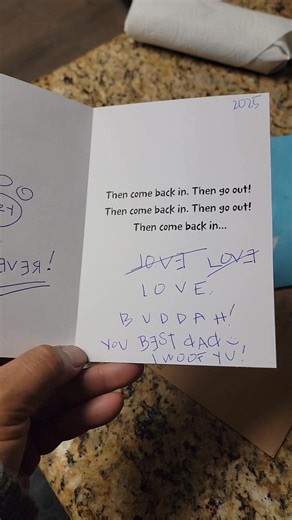 2025
Then come back in. Then go out!
Then come back in. Then go out!
Then come back in...
LOVE LOVE
LOVE,
BUDDAH!
YOU BEST dAd
I WOOF YU!
EVER!